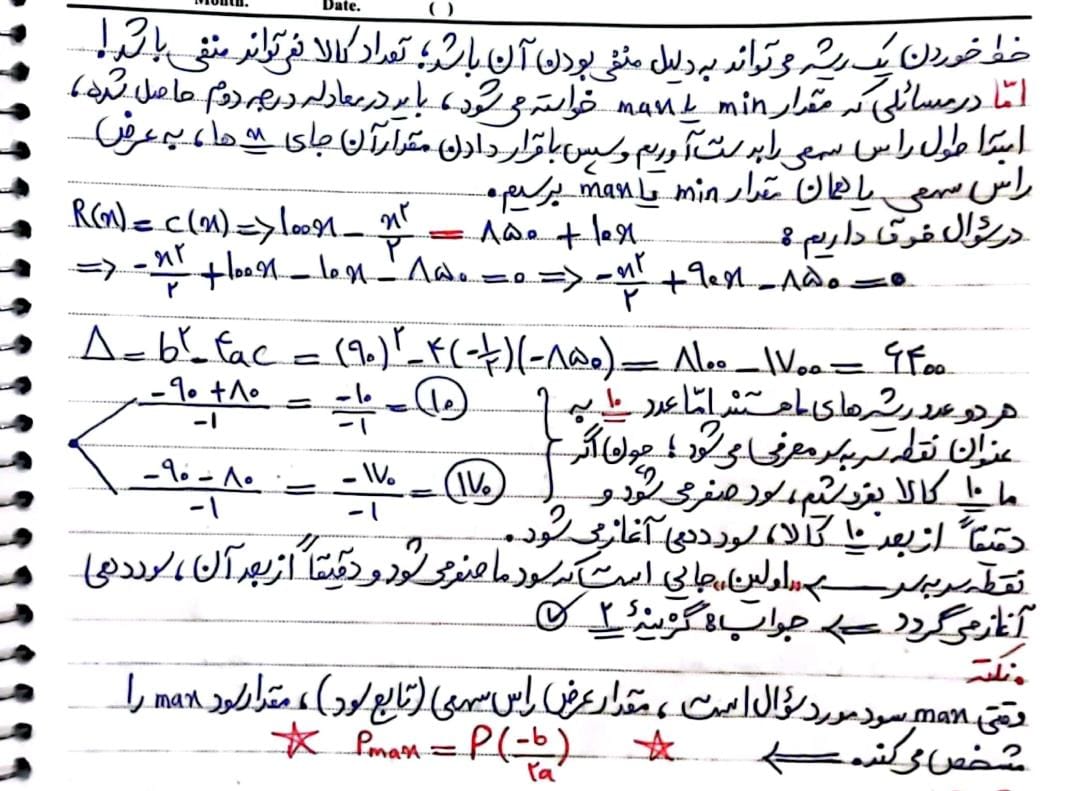 Month. Date. ( )
خط خوردن یک ریشه می‌تواند به دلیل منفی بودن آن باشد؛ تعداد کالا نمی‌تواند منفی باشد!
امّا در مسائلی که مقدار min یا max خواسته می‌شود، باید در معادله درجه دوم حاصل شده،
ابتدا طول راس سهمی را بدست آوریم و سپس با قرار دادن مقدار آن جای x ها، به عرض
راس سهمی یا همان مقدار min یا max برسیم.
در سؤال فوق داریم:
R(x) = c(x) => ۱۰۰x - x²/۲ = ۸۵۰ + ۱۰x
=> -x²/۲ + ۱۰۰x - ۱۰x - ۸۵۰ = ۰ => -x²/۲ + ۹۰x - ۸۵۰ = ۰
Δ = b² - ۴ac = (۹۰)² - ۴(-۱/۲)(-۸۵۰) = ۸۱۰۰ - ۱۷۰۰ = ۶۴۰۰
(-۹۰ + ۸۰)/-۱ = -۱۰/-۱ = ۱۰
(-۹۰ - ۸۰)/-۱ = -۱۷۰/-۱ = ۱۷۰
هر دو عدد ریشه‌های ما هستند امّا عدد ۱۰ به
عنوان نقطه سر به سر معرفی می‌شود؛ چون اگر
ما ۱۰ کالا بفروشیم، سود صفر می‌شود و
دقیقاً از بعد ۱۰ کالا، سوددهی آغاز می‌شود.
نقطه سر به سر ← "اولین" جایی است که سود ما صفر می‌شود و دقیقاً از بعد آن، سوددهی
آغاز می‌گردد ⇐ جواب: گزینهٔ ۲ ✓
نکته:
وقتی max سود مورد سؤال است، مقدار عرض راس سهمی (تابع سود)، مقدار سود max را
مشخص می‌کند. ⇐ ☆ Pmax = P(-b/۲a) ☆